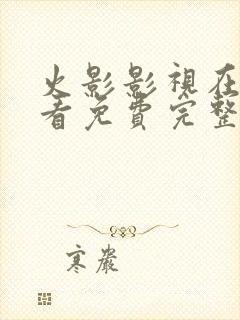 火影影視在
看免費完整
寒巖